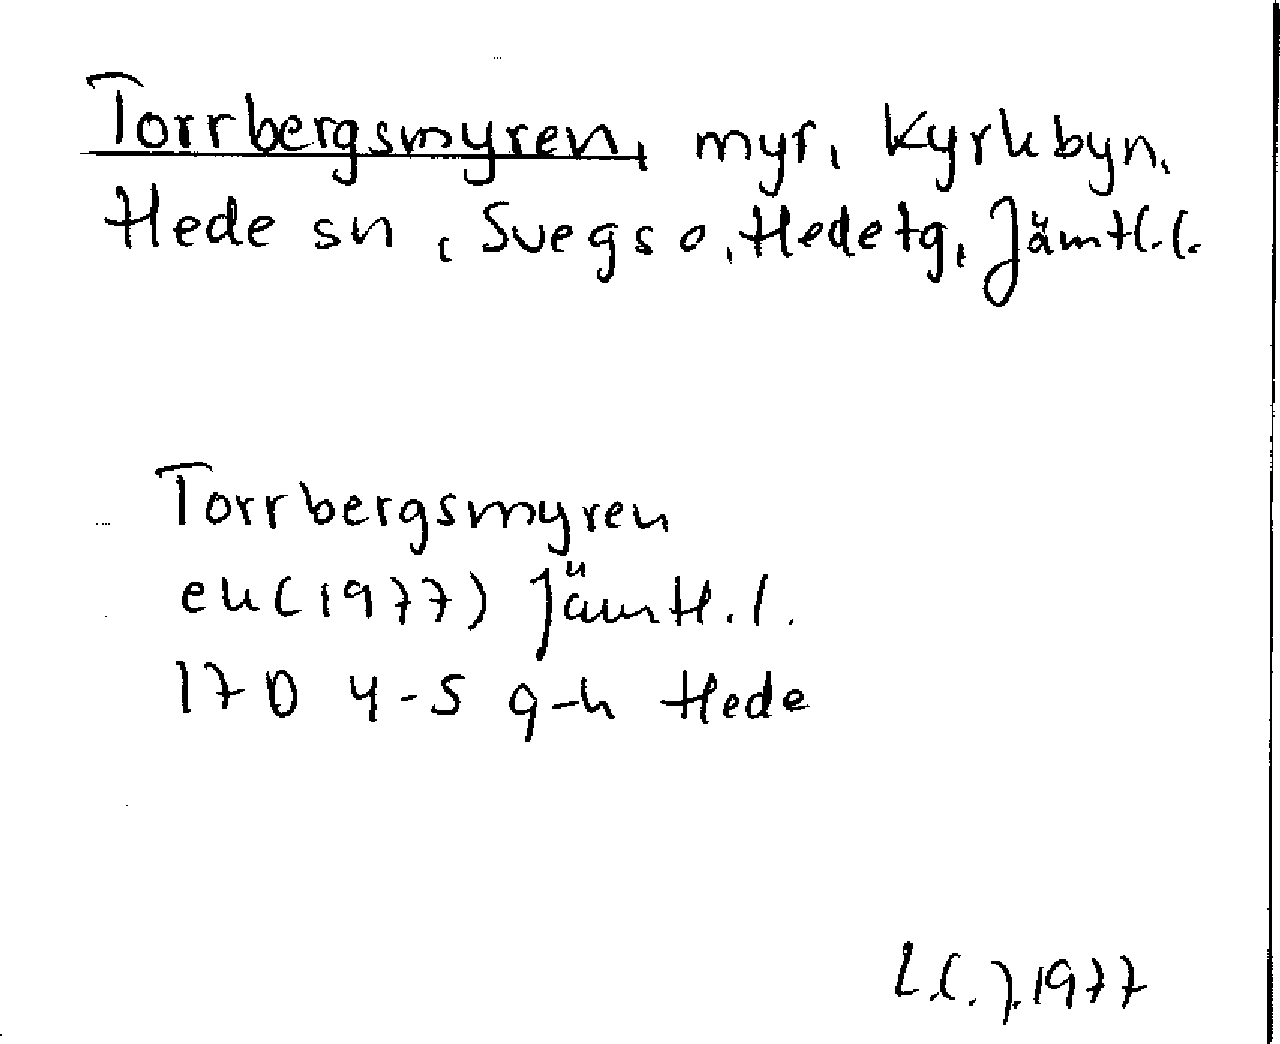 Torrbergsmyren, myr, Kyrkbyn,
Hede sn, Svegs o, Hede tg, Jämtl.l.
Torrbergsmyren
ek (1977) Jämtl.l.
17D 4-5 g-h Hede
L.C.J. 1977